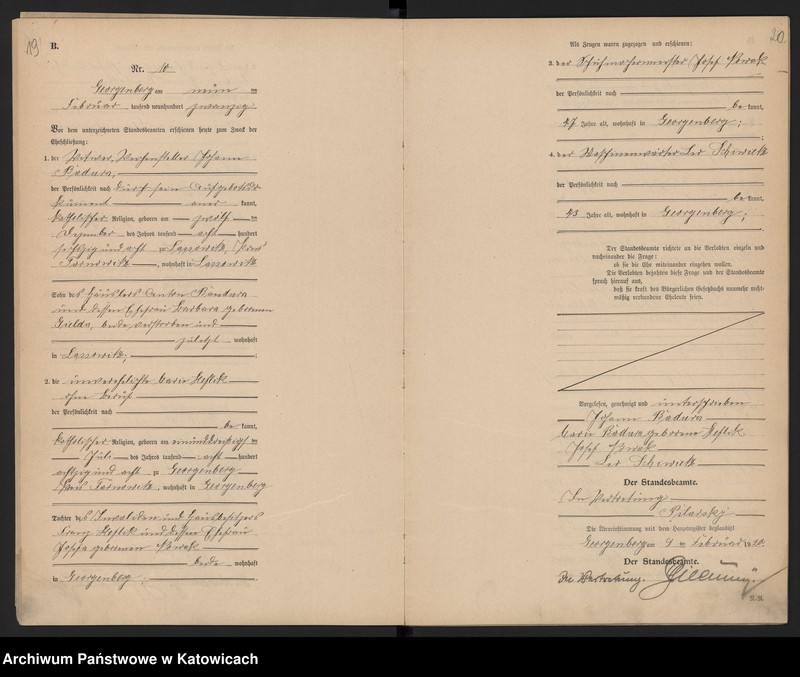 19
B.
Nr. 10
Georgenberg am neun ten
Februar tausend neunhundert zwanzig
Vor dem unterzeichneten Standesbeamten erschienen heute zum Zweck der
Eheschließung:
1. der Witwer, Weichensteller Johann
Badura,
der Persönlichkeit nach durch sein Aufgebots
kannt,
katholischer Religion, geboren am zwölften
Dezember des Jahres tausend acht hundert
sechzig und acht in Lassowitz, Kreis
Tarnowitz, wohnhaft in Lassowitz
Sohn des Häuslers Anton Badura
und dessen Ehefrau Barbara geborenen
beide verstorben und
zuletzt wohnhaft
in Lassowitz;
2. die unverehelichte Marie Hessek
ohne Beruf
der Persönlichkeit nach
be kannt,
katholischer Religion, geboren am einunddreißigsten
Juli des Jahres tausend acht hundert
achtzig und acht zu Georgenberg
Kreis Tarnowitz, wohnhaft in Georgenberg
Tochter des Invaliden und Hausbesitzers
Franz und dessen Ehefrau
Josefa geborenen Nowak
beide wohnhaft
in Georgenberg;
20.
Als Zeugen waren zugezogen und erschienen:
3. der Schuhmachermeister Josef Nowak
der Persönlichkeit nach
be kannt,
47 Jahre alt, wohnhaft in Georgenberg;
4. der Maschinenwärter Leo
der Persönlichkeit nach
be kannt,
43 Jahre alt, wohnhaft in Georgenberg;
Der Standesbeamte richtete an die Verlobten einzeln und
nacheinander die Frage:
ob sie die Ehe miteinander eingehen wollen.
Die Verlobten bejahten diese Frage und der Standesbeamte
sprach hierauf aus,
daß sie kraft des Bürgerlichen Gesetzbuchs nunmehr recht-
mäßig verbundene Eheleute seien.
Vorgelesen, genehmigt und unterschrieben
Johann Badura
Marie Badura geborene
Josef Nowak
Leo
Der Standesbeamte.
In Vertretung
Pilarsky
Die Übereinstimmung mit dem Hauptregister beglaubigt
Georgenberg am 9 ten Februar 1920.
Der Standesbeamte.
In Vertretung.
Archiwum Państwowe w Katowicach